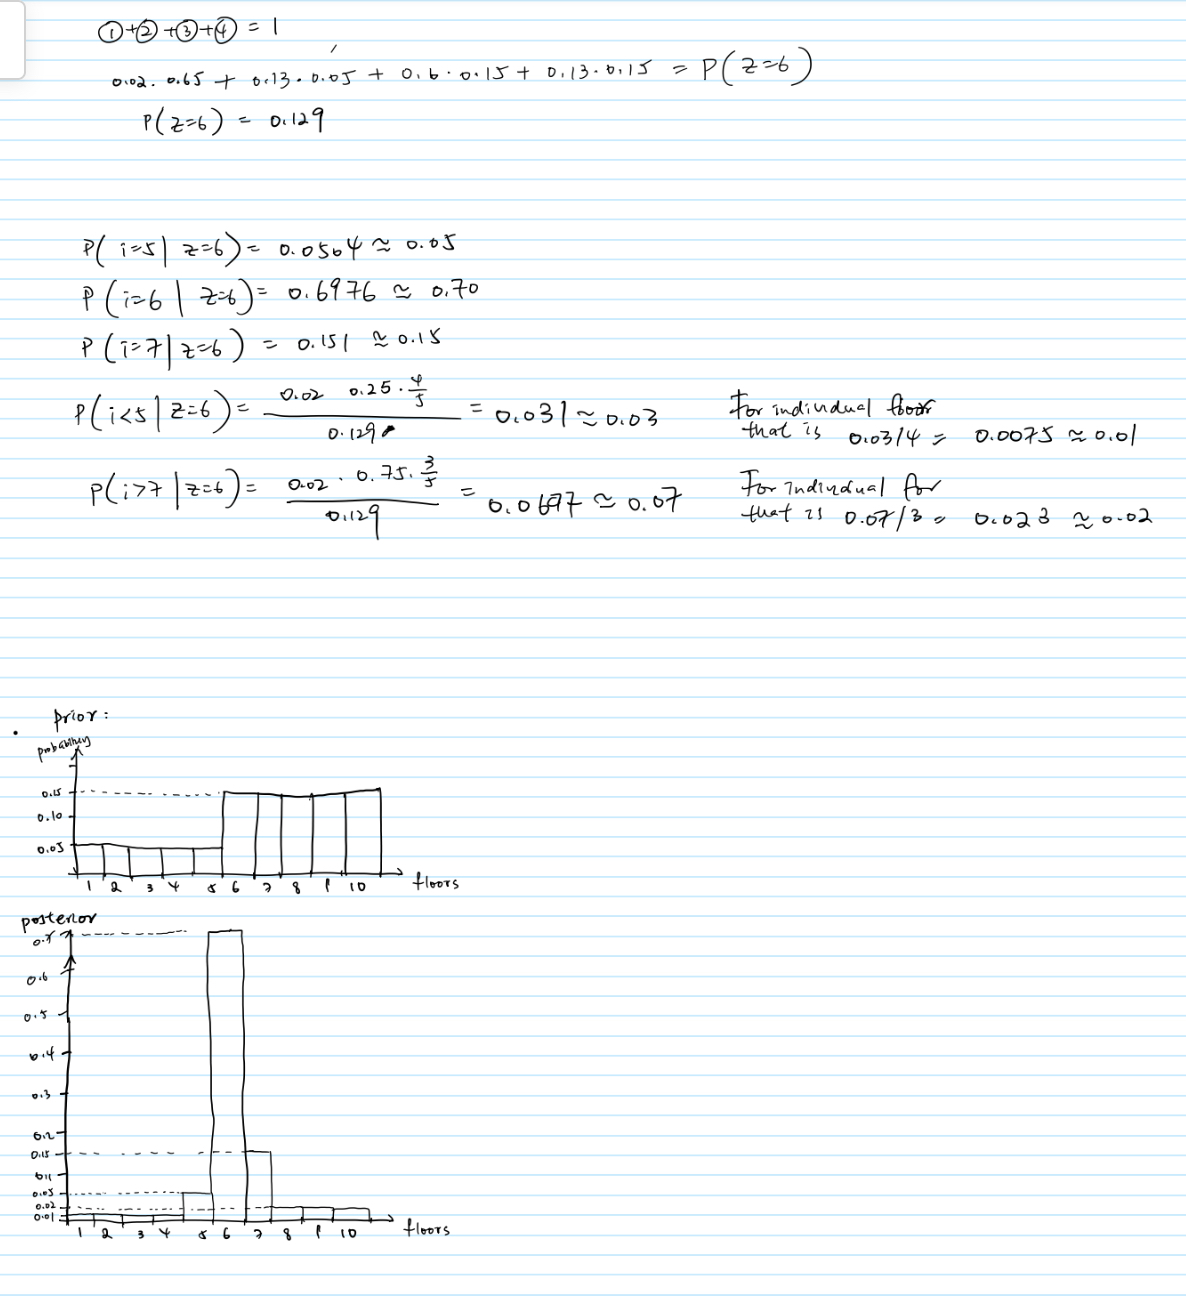 ①+②+③+④ = 1
0.02 · 0.65 + 0.13 · 0.05 + 0.6 · 0.15 + 0.13 · 0.15 = P(z=6)
P(z=6) = 0.129
P(i=5 | z=6) = 0.0504 ≈ 0.05
P(i=6 | z=6) = 0.6976 ≈ 0.70
P(i=7 | z=6) = 0.151 ≈ 0.15
P(i<5 | z=6) = 0.02 0.25 · 4/5 / 0.129 = 0.031 ≈ 0.03
For individual floor
that is 0.03/4 = 0.0075 ≈ 0.01
P(i>7 | z=6) = 0.02 · 0.75 · 3/5 / 0.129 = 0.0697 ≈ 0.07
For individual for
that is 0.07/3 = 0.023 ≈ 0.02
prior:
probability
0.15
0.10
0.05
1 2 3 4 5 6 7 8 9 10 floors
posterior
0.7
0.6
0.5
0.4
0.3
0.2
0.15
0.1
0.05
0.02
0.01
1 2 3 4 5 6 7 8 9 10 floors